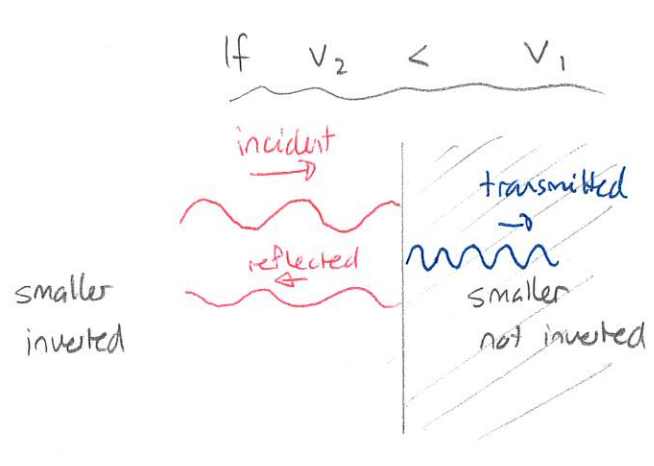 If V₂ < V₁
incident
transmitted
reflected
smaller
inverted
smaller
not inverted